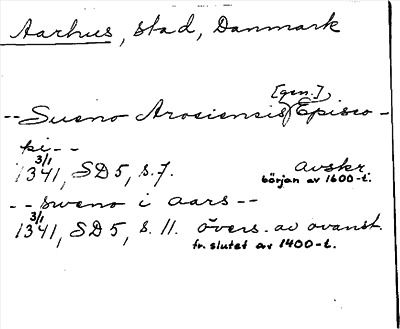 Aarhus, stad, Danmark
[gen.]
-- Sueno Arosiensis Episco-
pi --
3/1
1341, SD 5, s. 7. avskr.
början av 1600-t.
-- sweno i aars --
3/1
1341, SD 5, s. 11. övers. av ovanst.
fr. slutet av 1400-t.